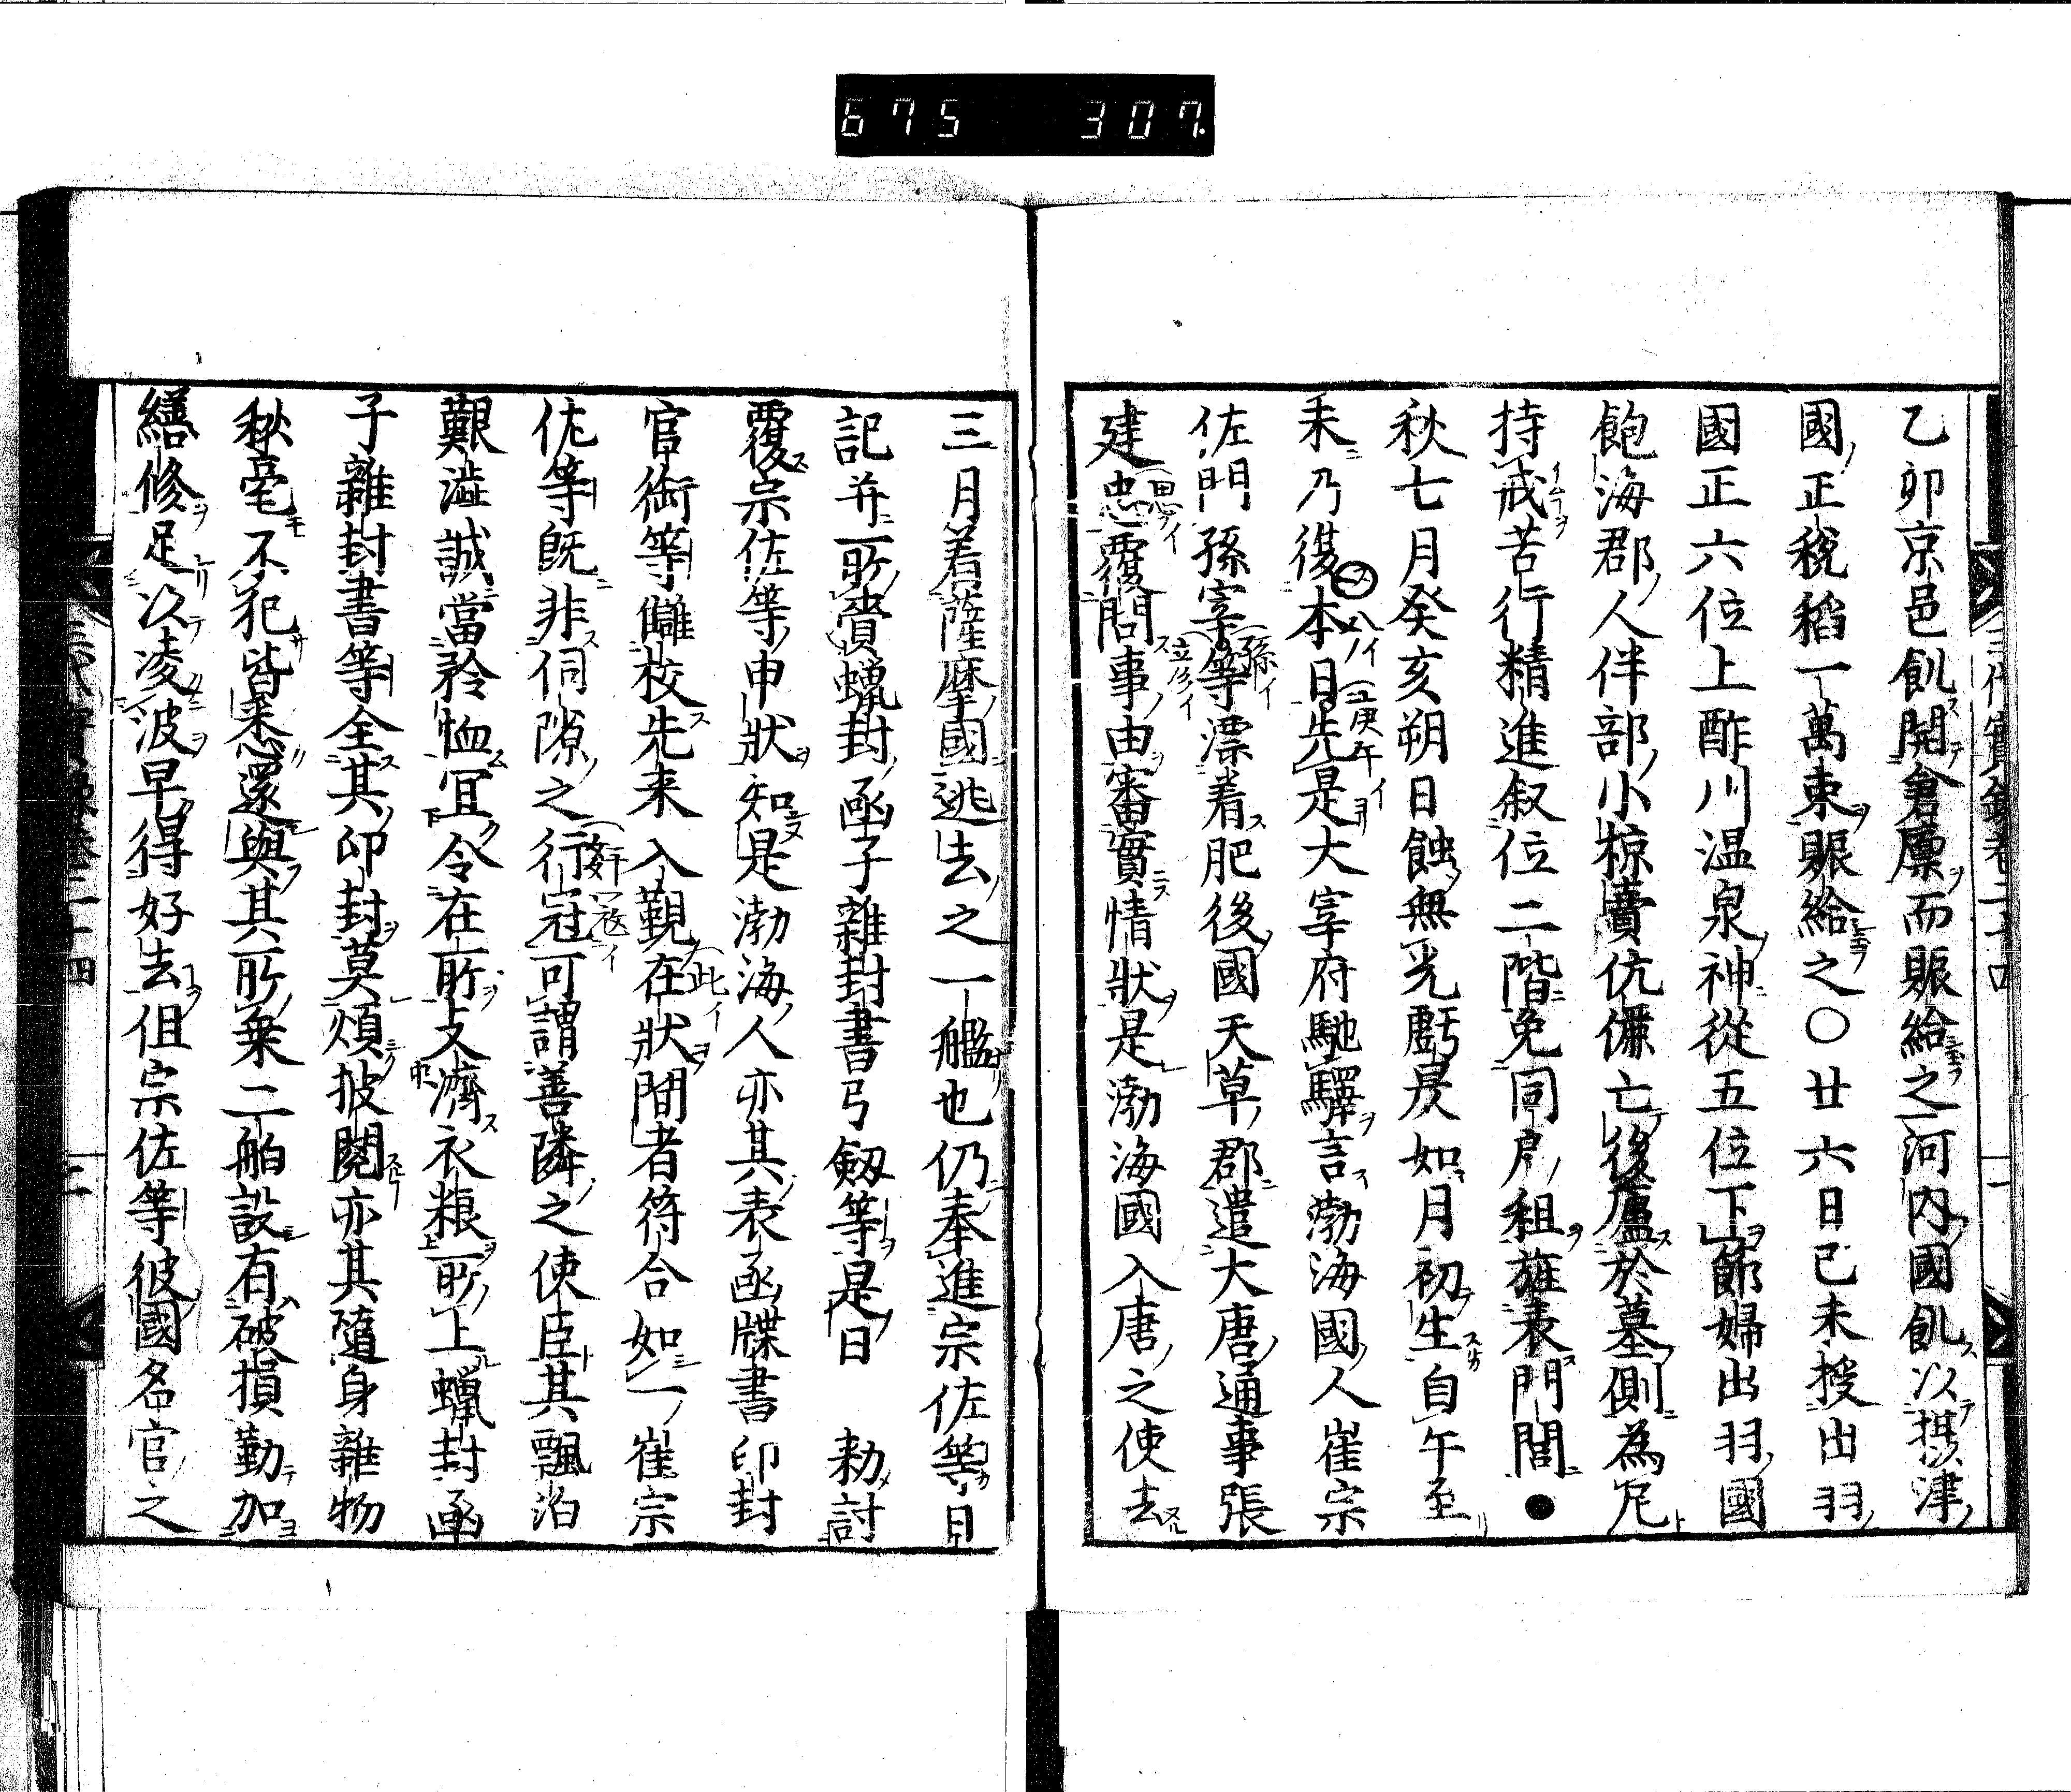 675 307
乙卯京邑飢開倉廩而賑給之河内國飢以摂津
國正税稻一萬束賑給之○廿六日己未授出羽
國正六位上酢川温泉神從五位下節婦出羽國
飽海郡人伴部小椋賣伉儷亡後廬於墓側為尼
持戒苦行精進叙位二階免同戸租旌表門閭●
秋七月癸亥朔日蝕無光虧昃如月初生自午至
未乃復本日先是大宰府馳驛言渤海國人崔宗
佐門孫宰等漂着肥後國天草郡遣大唐通事張
建忠覆問事由審實情狀是渤海國入唐之使去
三月着薩摩國逃去之一艦也仍奉進宗佐等日
記并所賷蠟封函子雜封書弓劔等是日 勅討
覆宗佐等申狀知是渤海人亦其表函牒書印封
官銜等讎校先来入覲在狀間者符合如一崔宗
佐等既非伺隙之行冦可謂善隣之使臣其飄泊
艱澁誠當矜恤冝令在所支濟衣粮所上蠟封函
子雜封書等全其印封莫煩披閲亦其隨身雜物
秋毫不犯皆悉還與其所乗二舶設有破損勤加
繕修足以凌波早得好去但宗佐等彼國名官之